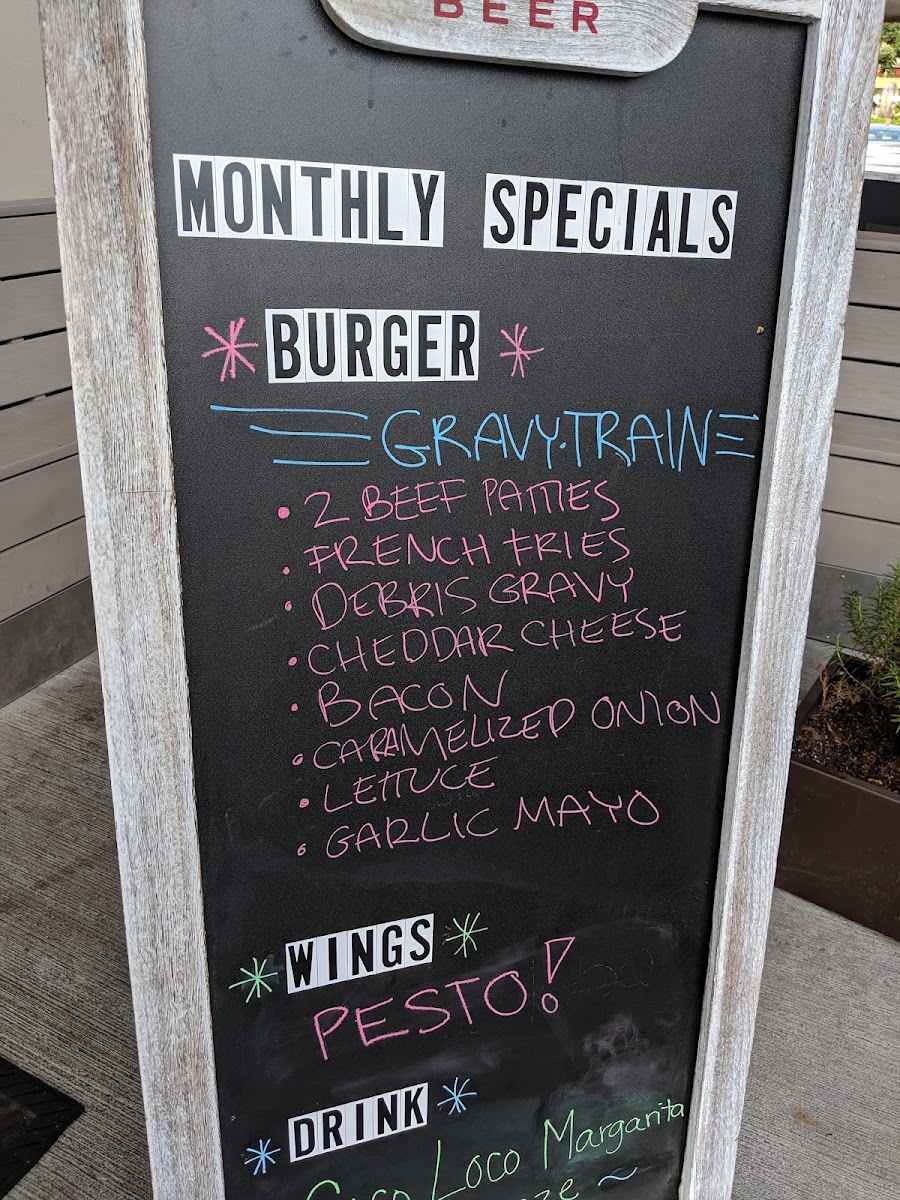 BEER
MONTHLY SPECIALS
BURGER
GRAVY•TRAIN
• 2 BEEF PATTIES
• FRENCH FRIES
• DEBRIS GRAVY
• CHEDDAR CHEESE
• BACON
• CARAMELIZED ONION
• LETTUCE
• GARLIC MAYO
WINGS
PESTO!
DRINK
Coco Loco Margarita